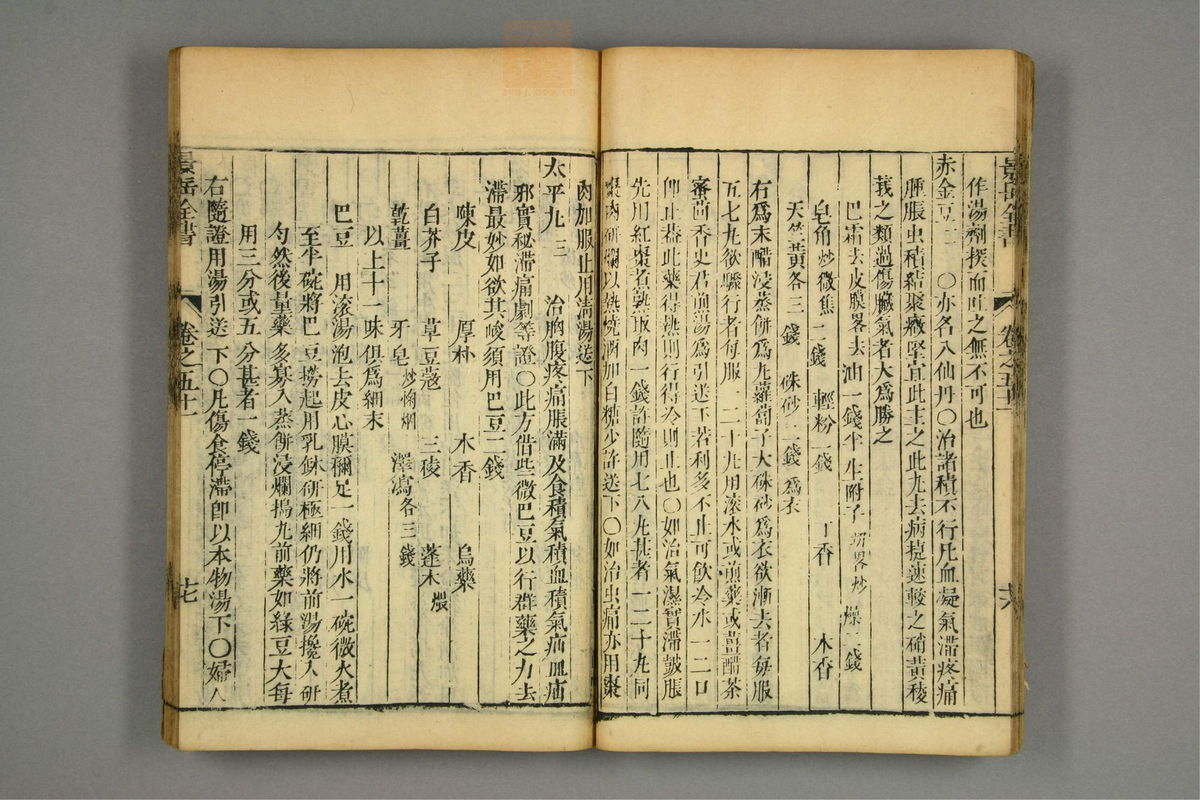 景岳全書
卷之五十一
作湯劑探而吐之無不可也
赤金豆二 〇亦名八仙丹〇治諸積不行凡血凝氣滯疼痛
腫脹虫積結聚癥堅宜此主之此丸去病捷速較之硝黄稜
莪之類過傷臟氣者大爲勝之
巴霜去皮膜畧去油一錢半 生附子切畧炒燥二錢
皂角炒微焦二錢 輕粉一錢 丁香 木香
天竺黃各三錢 硃砂二錢爲衣
右爲末醋浸蒸餅爲丸蘿蔔子大硃砂爲衣欲漸去者每服
五七丸欲驟行者每服一二十丸用滚水或煎藥或薑醋茶
蜜茴香史君煎湯爲引送下若利多不止可飲冷水一二口
即止蓋此藥得熱則行得冷則止也〇如治氣濕實滯皷脹
先用紅棗煮熟取肉一錢許隨用七八丸甚者一二十丸同
棗肉研爛以熱燒酒加白糖少許送下〇如治虫痛亦用棗
肉加服止用清湯送下
太平丸三 治胸腹疼痛脹滿及食積氣積血積氣疝血疝
邪實秘滯痛劇等證〇此方借些微巴豆以行群藥之力去
滯最妙如欲其峻須用巴豆二錢
陳皮 厚朴 木香 烏藥
白芥子 草豆蔻 三稜 蓬朮煨
乾薑 牙皂炒斷烟 澤瀉各三錢
以上十一味俱爲細末
巴豆 用滚湯泡去皮心膜稱足一錢用水一碗微火煮
至半碗將巴豆撈起用乳鉢研極細仍將前湯攙入研
勻然後量藥多寡入蒸餅浸爛搗丸前藥如綠豆大每
用三分或五分甚者一錢
右隨證用湯引送下〇凡傷食停滯即以本物湯下〇婦人
景岳全書
卷之五十一